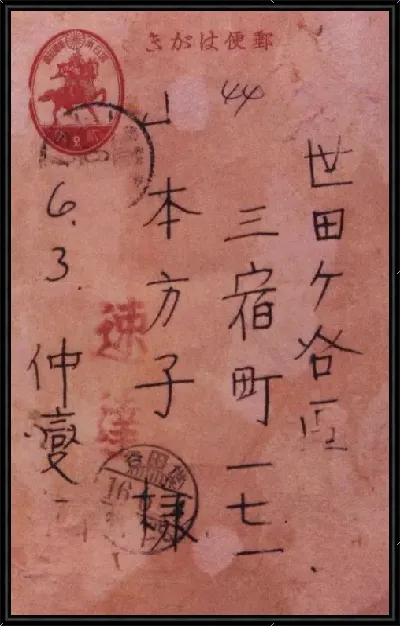 郵便はがき
世田ケ谷区
44
三宿町一七一
山本方子様
速達
6.3 仲燮
16